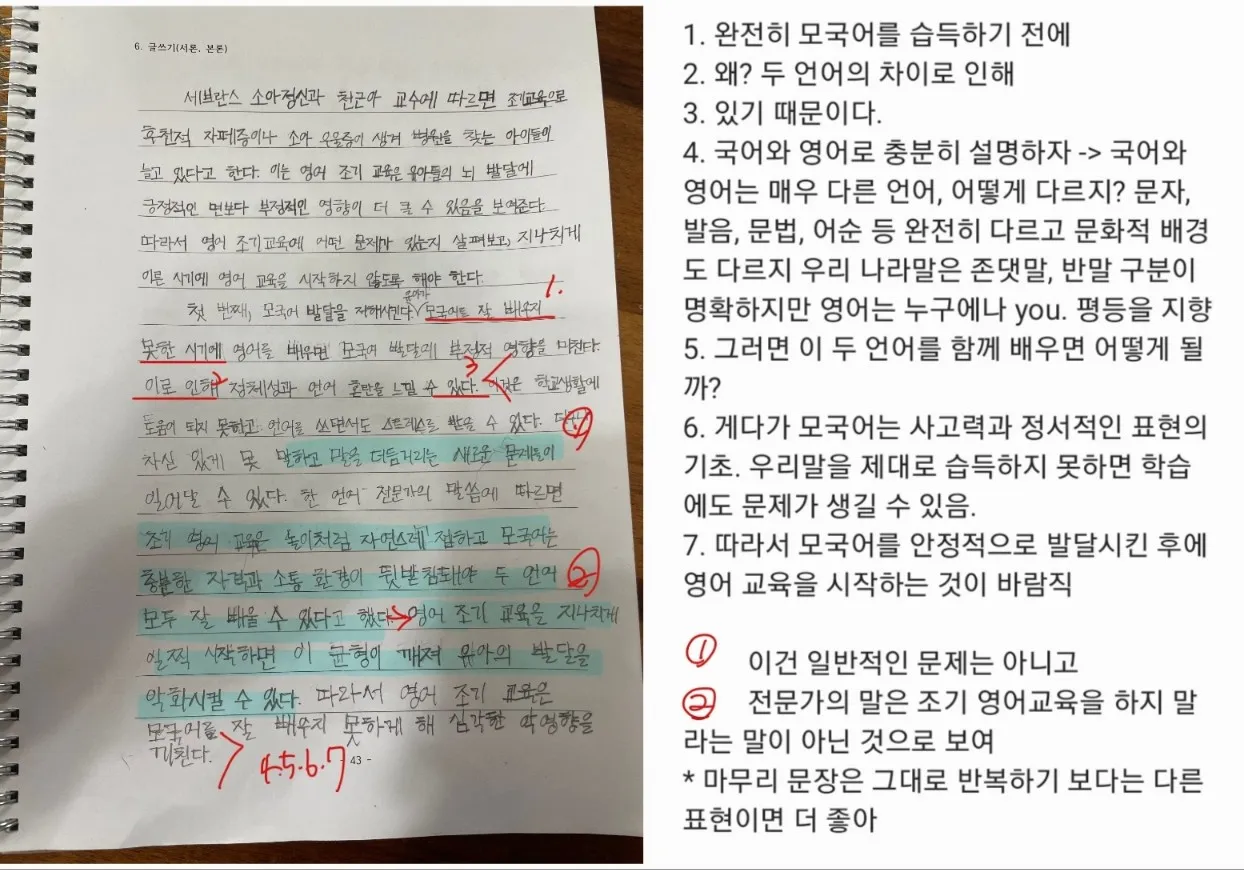 6. 글쓰기(서론, 본론)
세브란스 소아정신과 천근아 교수에 따르면 조기교육으로
후천적 자폐증이나 소아 우울증이 생겨 병원을 찾는 아이들이
늘고 있다고 한다. 이는 영어 조기 교육은 유아들의 뇌 발달에
긍정적인 면보다 부정적인 영향이 더 클 수 있음을 보여준다.
따라서 영어 조기교육에 어떤 문제가 있는지 살펴보고, 지나치게
이른 시기에 영어 교육을 시작하지 않도록 해야 한다.
유아가
1.
첫 번째, 모국어 발달을 저해시킨다. 모국어도 잘 배우지
못한 시기에 영어를 배우면 모국어 발달에 부정적 영향을 미친다.
2
3
이로 인해 정체성과 언어 혼란을 느낄 수 있다. 이것은 학교생활에
도움이 되지 못하고 언어를 쓰면서도 스트레스를 받을 수 있다.
①
자신 있게 못 말하고 말을 더듬거리는 새로운 문제들이
일어날 수 있다. 한 언어 전문가의 말씀에 따르면
조기 영어 교육은 놀이처럼 자연스레 접하고 모국어는
충분한 자극과 소통 환경이 뒷받침돼야 두 언어
②
모두 잘 배울 수 있다고 했다. 영어 조기 교육을 지나치게
일찍 시작하면 이 균형이 깨져 유아의 발달을
악화시킬 수 있다. 따라서 영어 조기 교육은
모국어를 잘 배우지 못하게 해 심각한 악영향을
끼친다.
4.5.6.7
43 -
1. 완전히 모국어를 습득하기 전에
2. 왜? 두 언어의 차이로 인해
3. 있기 때문이다.
4. 국어와 영어로 충분히 설명하자 -> 국어와
영어는 매우 다른 언어, 어떻게 다르지? 문자,
발음, 문법, 어순 등 완전히 다르고 문화적 배경
도 다르지 우리 나라말은 존댓말, 반말 구분이
명확하지만 영어는 누구에나 you. 평등을 지향
5. 그러면 이 두 언어를 함께 배우면 어떻게 될
까?
6. 게다가 모국어는 사고력과 정서적인 표현의
기초. 우리말을 제대로 습득하지 못하면 학습
에도 문제가 생길 수 있음.
7. 따라서 모국어를 안정적으로 발달시킨 후에
영어 교육을 시작하는 것이 바람직
① 이건 일반적인 문제는 아니고
② 전문가의 말은 조기 영어교육을 하지 말
라는 말이 아닌 것으로 보여
* 마무리 문장은 그대로 반복하기 보다는 다른
표현이면 더 좋아